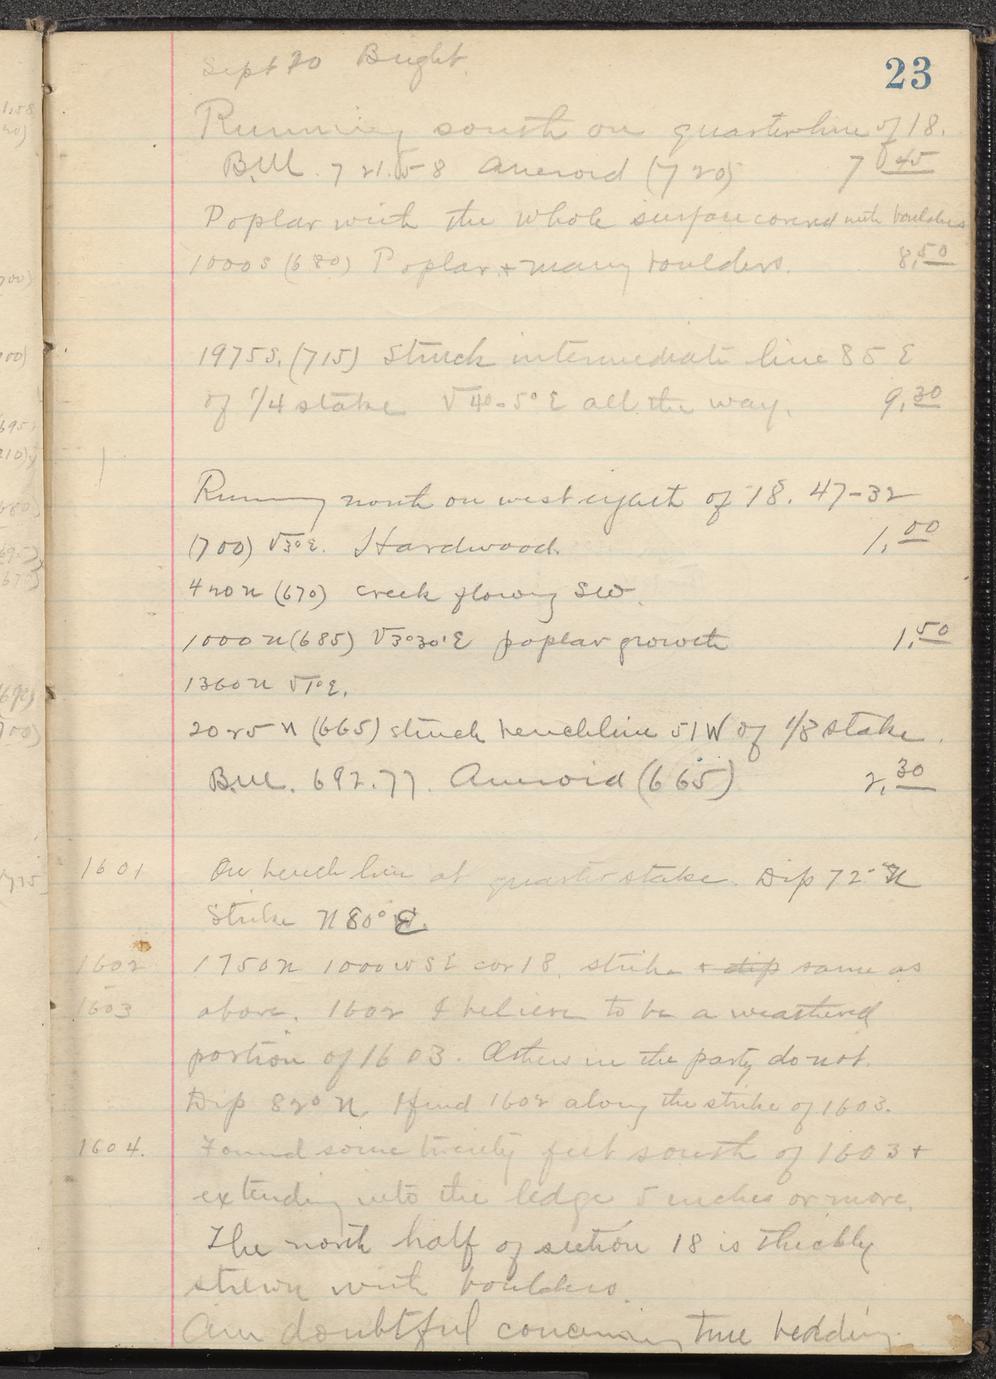 23
Sept 20 Bright.
Running south on quarterline of 18.
B.M. 721.58 Aneroid (720) 7 45
Poplar with the whole surface covered with boulders
1000 S (680) Poplar + many boulders. 8.50
1975 S. (715) Struck intermediate line 85 E
of 1/4 stake V 4°-5° E all the way. 9.30
Running north on west eighth of 18. 47-32
(700) V3°E. Hardwood. 1.00
420 N (670) creek flowing SW.
1000 N (685) V3°30'E poplar growth 1.50
1360 N V1°E.
2025 N (665) struck benchline 51 W of 1/8 stake.
B.M. 692.77. Aneroid (665) 2.30
1601 On bench line at quarter stake. Dip 72° N
Strike N 80° E.
1602 1750 N 1000 W SE cor 18. strike + dip same as
1603 above. 1602 I believe to be a weathered
portion of 1603. Others in the party do not.
Dip 82° N. I find 1602 along the strike of 1603.
1604. Found some twenty feet south of 1603 +
extending into the ledge 5 inches or more.
The north half of section 18 is thickly
strewn with boulders.
Am doubtful concerning true bedding.